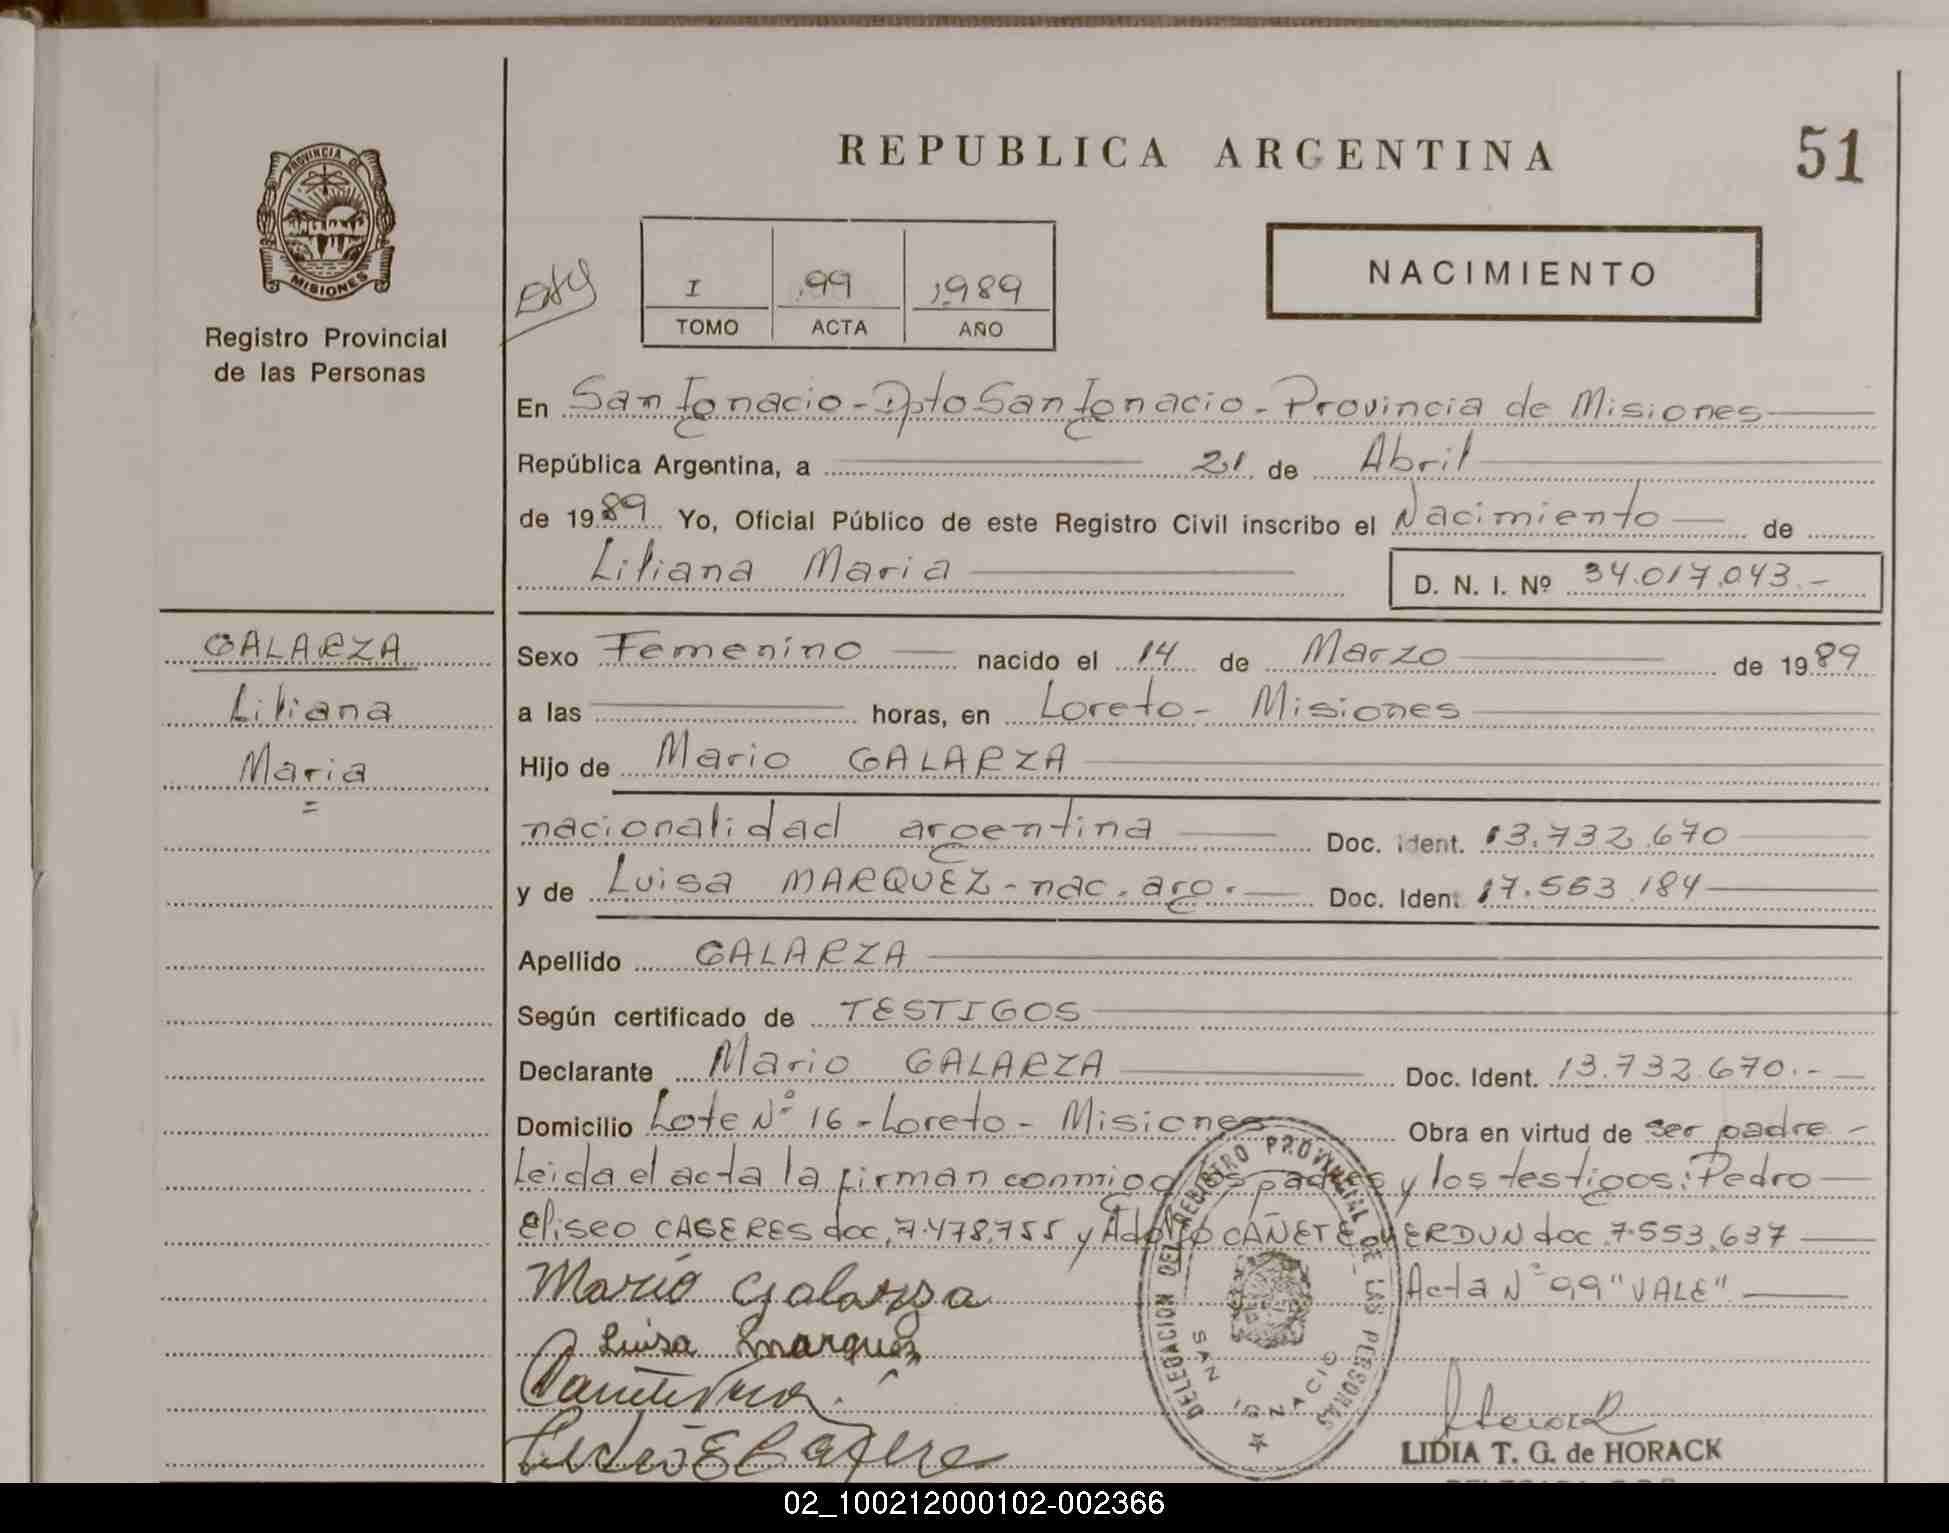 REPUBLICA ARGENTINA
51
PROVINCIA DE
MISIONES
Registro Provincial
de las Personas
I .99 1989
TOMO ACTA AÑO
NACIMIENTO
En San Ignacio - Dpto San Ignacio - Provincia de Misiones
República Argentina, a 21 de Abril
de 1989 Yo, Oficial Público de este Registro Civil inscribo el Nacimiento de
Liliana Maria
D. N. I. Nº 34.017.043.-
GALARZA
Liliana
Maria
=
Sexo Femenino nacido el 14 de Marzo de 1989
a las horas, en Loreto - Misiones
Hijo de Mario GALARZA
nacionalidad argentina Doc. Ident. 13.732.670
y de Luisa MARQUEZ - nac. arg. Doc. Ident. 17.563.184
Apellido GALARZA
Según certificado de TESTIGOS
Declarante Mario GALARZA Doc. Ident. 13.732.670.-
Domicilio Lote Nº 16 - Loreto - Misiones Obra en virtud de ser padre -
Leida el acta la firman conmigo los padres y los testigos: Pedro
Eliseo CASERES doc. 7.478.755 y Adolfo CAÑETE VERDUN doc. 7.553.637
Mario Galarza
Acta Nº 99 "VALE"
Luisa marquez
DELEGACION DEL REGISTRO PROVINCIAL DE LAS PERSONAS
SAN IGNACIO
LIDIA T. G. de HORACK
02_100212000102-002366